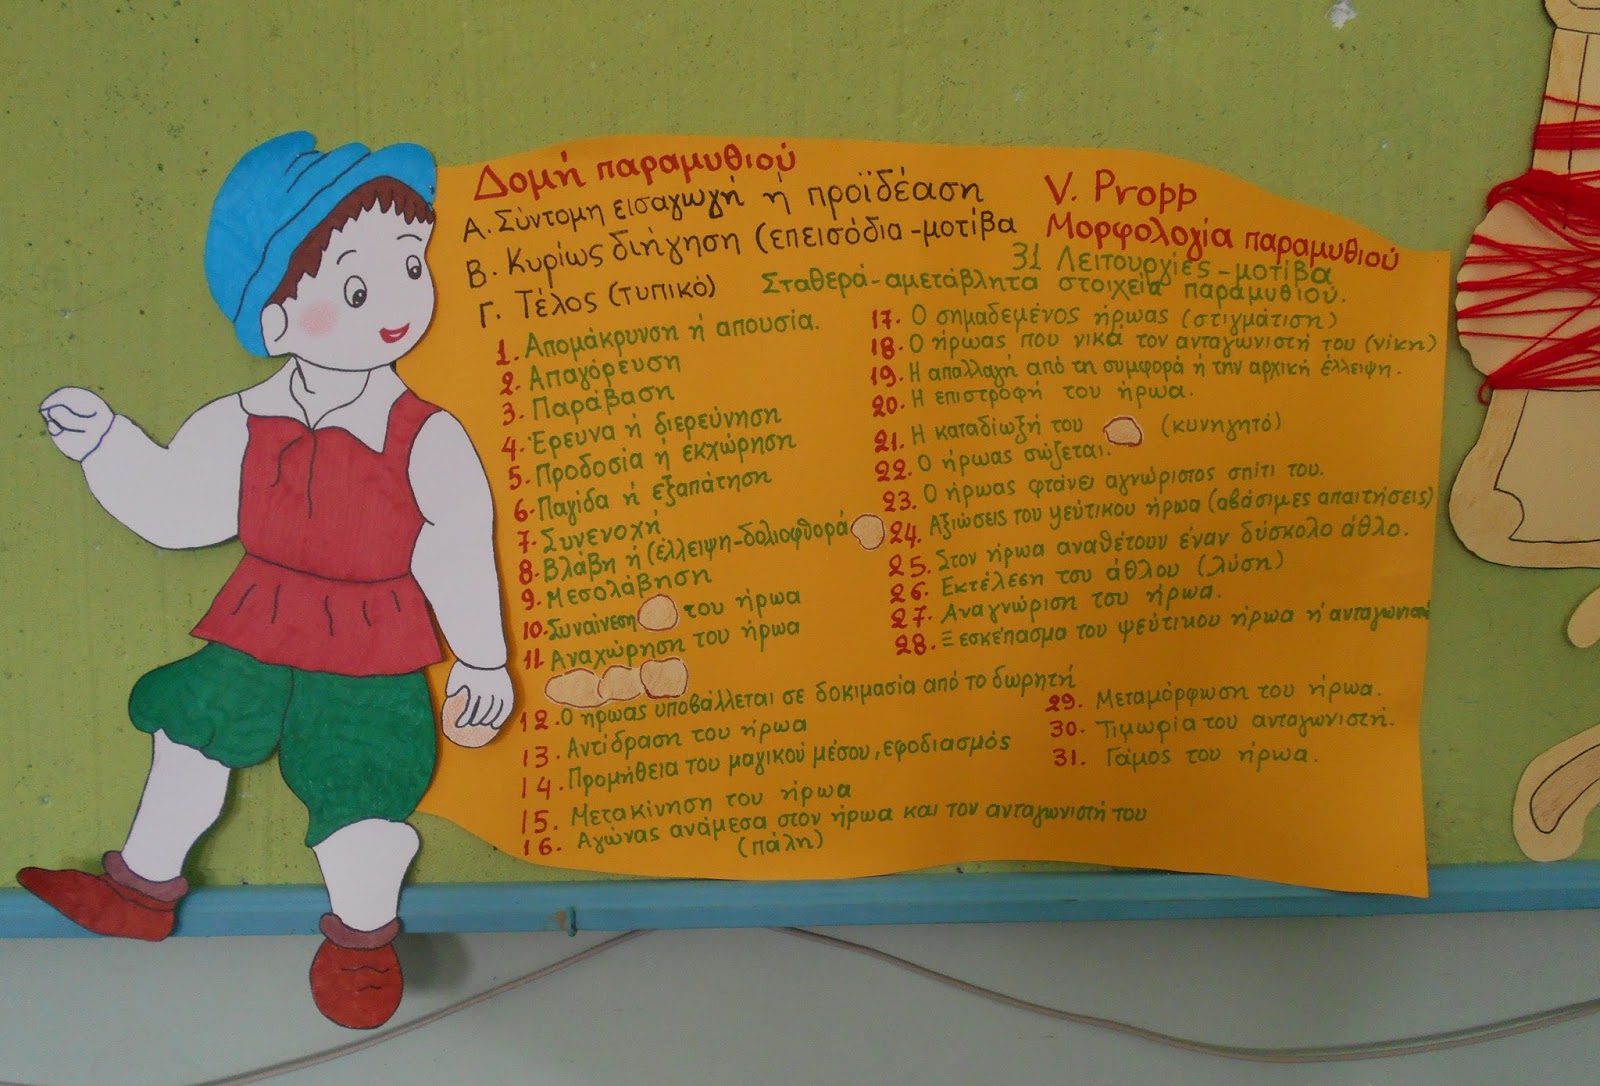 Δομή παραμυθιού
Α. Σύντομη εισαγωγή ή προϊδέαση
Β. Κυρίως διήγηση (επεισόδια-μοτίβα
Γ. Τέλος (τυπικό)
V. Propp
Μορφολογία παραμυθιού
31 Λειτουργίες-μοτίβα
Σταθερά-αμετάβλητα στοιχεία παραμυθιού.
1. Απομάκρυνση ή απουσία.
2. Απαγόρευση
3. Παράβαση
4. Έρευνα ή διερεύνηση
5. Προδοσία ή εκχώρηση
6. Παγίδα ή εξαπάτηση
7. Συνενοχή
8. Βλάβη ή (έλλειψη-δολιοφθορά
9. Μεσολάβηση
10. Συναίνεση του ήρωα
11. Αναχώρηση του ήρωα
12. Ο ήρωας υποβάλλεται σε δοκιμασία από το δωρητή
13. Αντίδραση του ήρωα
14. Προμήθεια του μαγικού μέσου, εφοδιασμός
15. Μετακίνηση του ήρωα
16. Αγώνας ανάμεσα στον ήρωα και τον ανταγωνιστή του
(πάλη)
17. Ο σημαδεμένος ήρωας (στιγμάτιση)
18. Ο ήρωας που νικά τον ανταγωνιστή του (νίκη)
19. Η απαλλαγή από τη συμφορά ή την αρχική έλλειψη.
20. Η επιστροφή του ήρωα.
21. Η καταδίωξή του (κυνηγητό)
22. Ο ήρωας σώζεται.
23. Ο ήρωας φτάνει αγνώριστος σπίτι του.
24. Αξιώσεις του ψεύτικου ήρωα (αβάσιμες απαιτήσεις)
25. Στον ήρωα αναθέτουν έναν δύσκολο άθλο.
26. Εκτέλεση του άθλου (λύση)
27. Αναγνώριση του ήρωα.
28. Ξεσκέπασμα του ψεύτικου ήρωα ή ανταγωνιστή
29. Μεταμόρφωση του ήρωα.
30. Τιμωρία του ανταγωνιστή.
31. Γάμος του ήρωα.